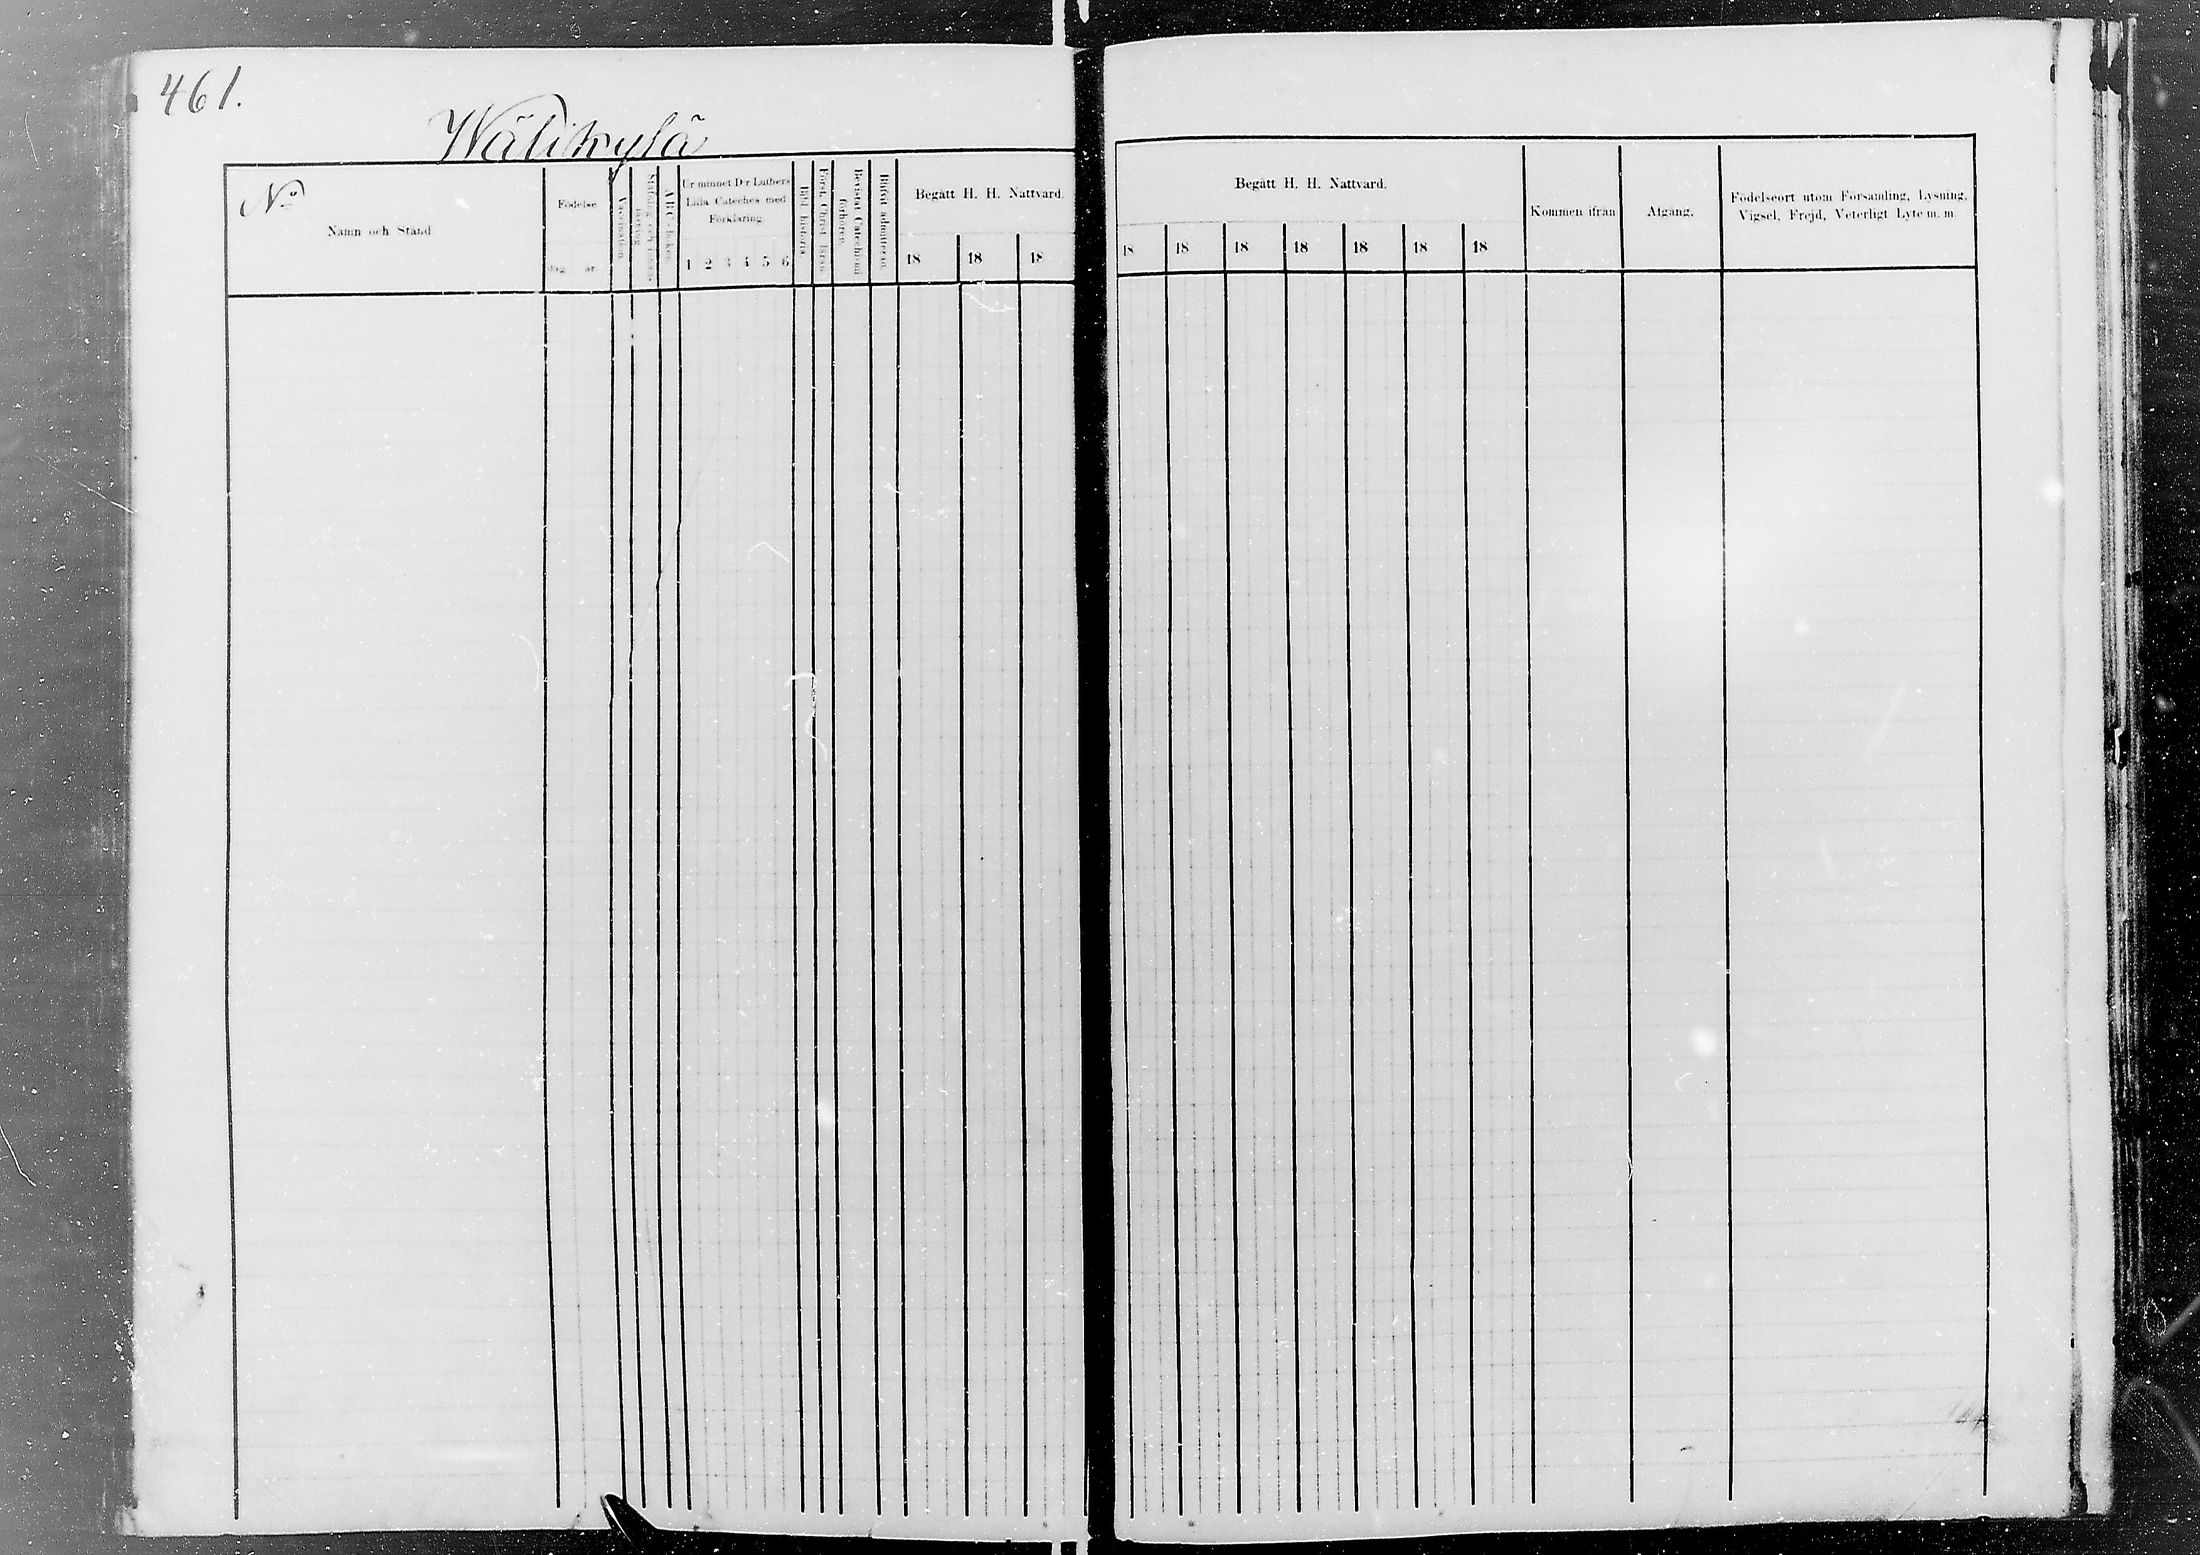 461.
Wälikylä
No
Namn och Stånd
Födelse
dag. år.
Vaccination.
ABC-boken
Ur minnet D:r Luthers
Lilla Cateches med
Förklaring.
1 2 3 4 5 6
Bibl. historia
Först. Christ. läran
Bevistat Catechismi
förhören.
Blifvit admitteran
Begått H. H. Nattvard.
18 18 18
Begått H. H. Nattvard.
18 18 18 18 18 18 18
Kommen ifrån
Afgång.
Födelseort utom Församling, Lysning,
Vigsel, Frejd, Veterligt Lyte m. m.